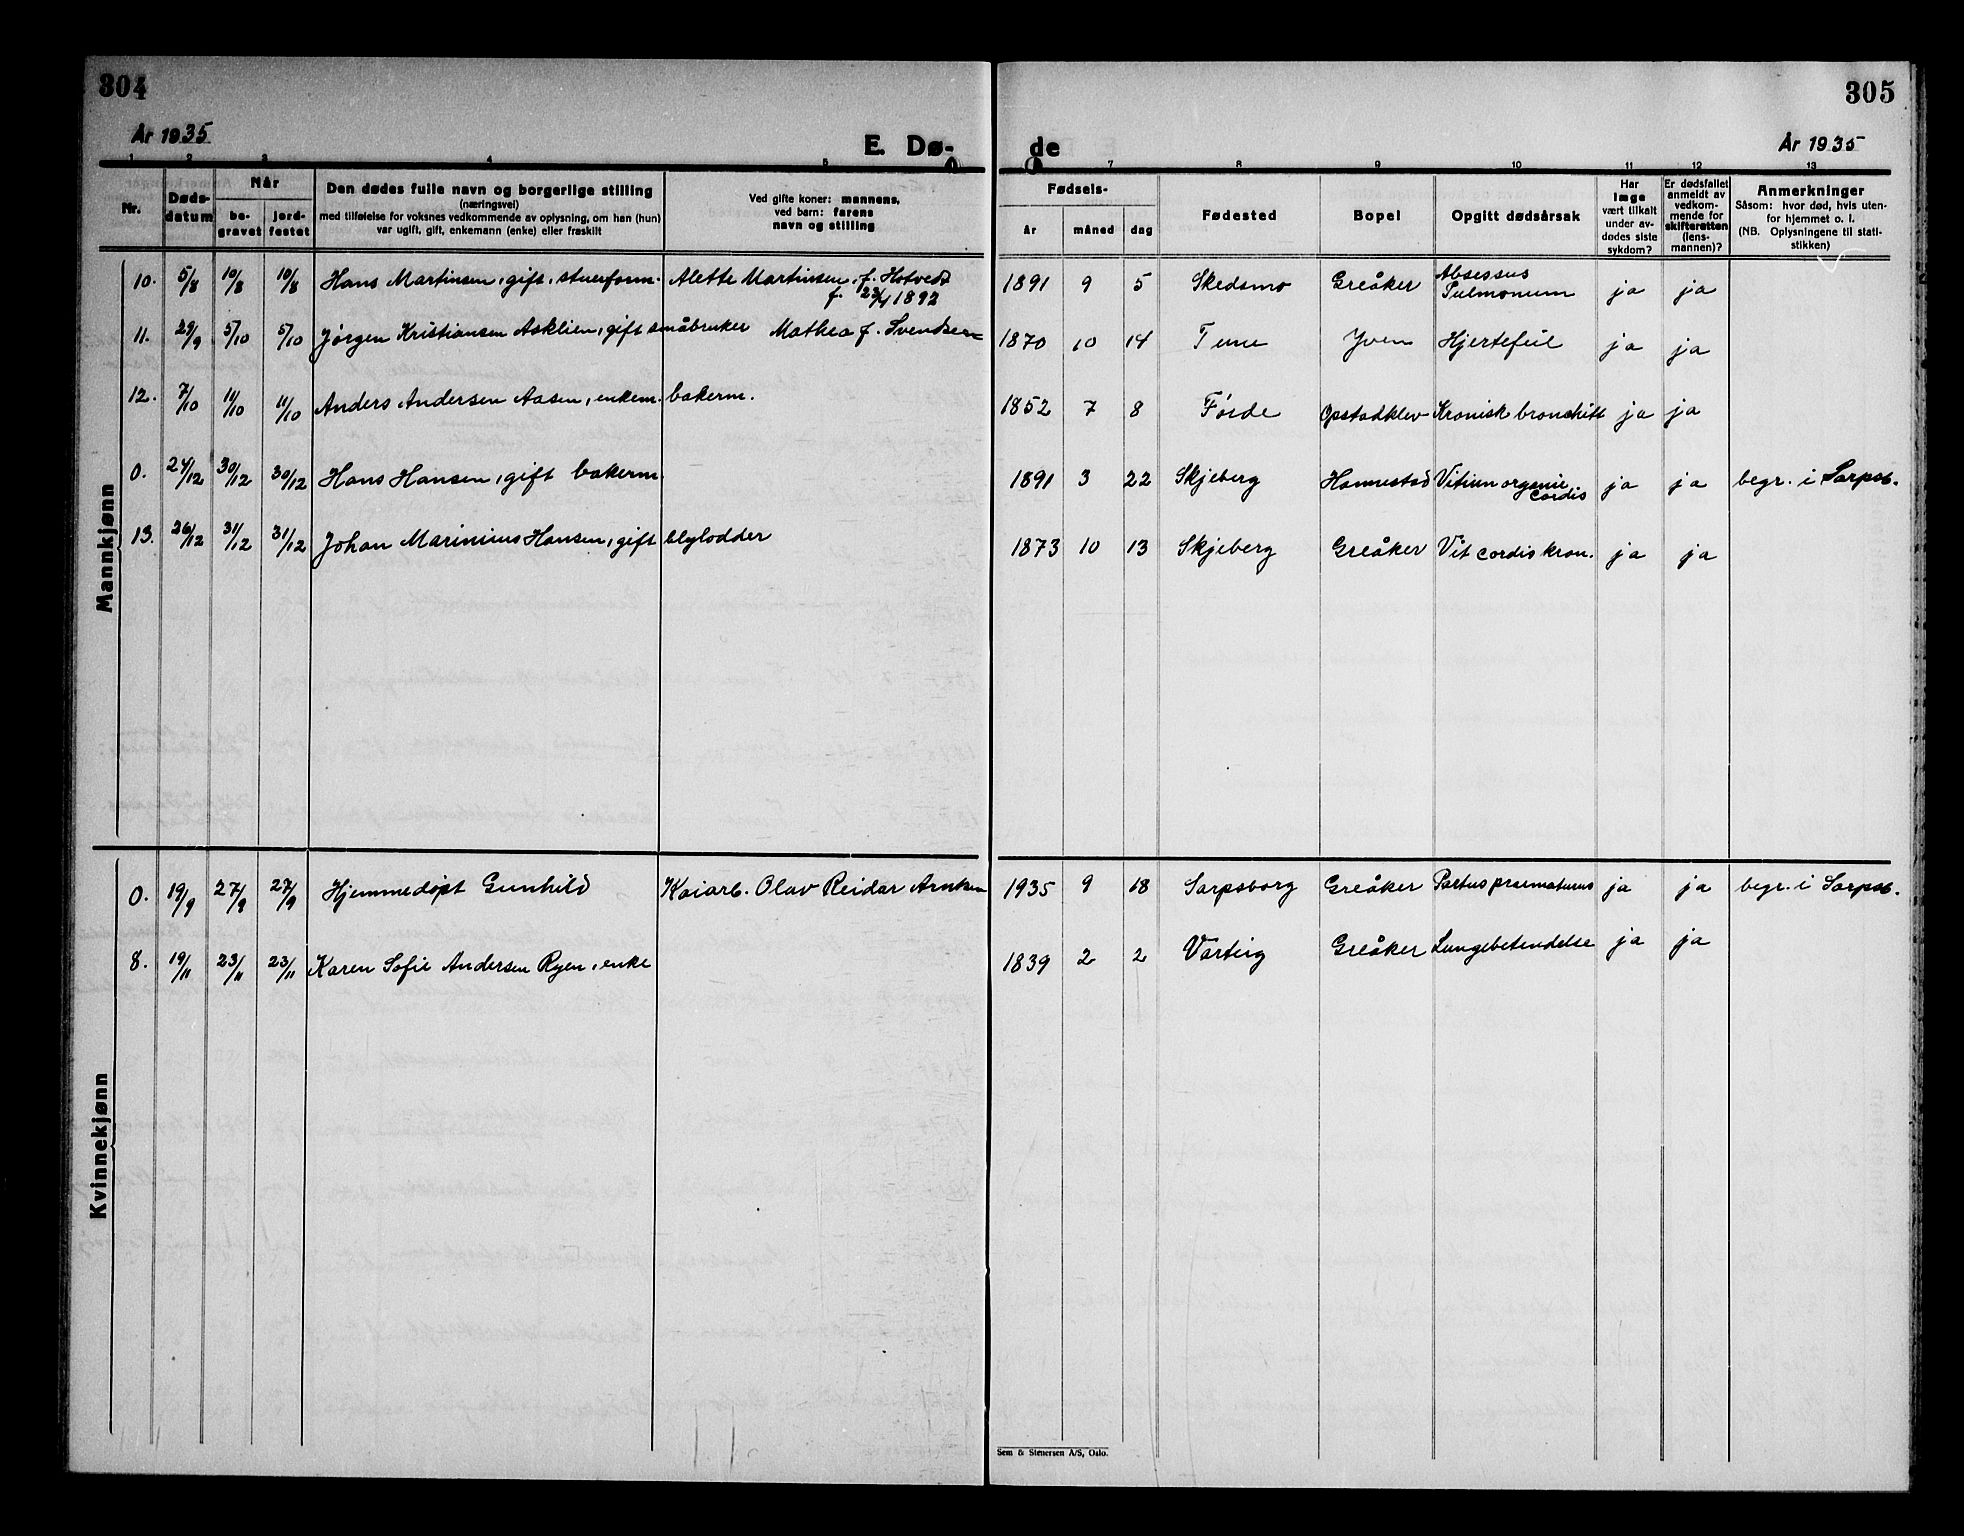 304
År 1935
E. Dø-
de
År 1935
305
1 2 3 4 5 6
6 7 8 9 10 11 12 13
Nr.
Døds-
datum
Når
be-
gravet
jord-
festet
Den dødes fulle navn og borgerlige stilling
(næringsvei)
med tilføielse for voksnes vedkommende av oplysning, om han (hun)
var ugift, gift, enkemann (enke) eller fraskilt
Ved gifte koner: mannens,
ved barn: farens
navn og stilling
Fødsels-
år
måned
dag
Fødested
Bopel
Opgitt dødsårsak
Har
læge
vært tilkalt
under av-
dødes siste
sykdom?
Er dødsfallet
anmeldt av
vedkom-
mende for
skifteretten
(lens-
mannen)?
Anmerkninger
Såsom: hvor død, hvis uten-
for hjemmet o. l.
(NB. Oplysningene til stati-
stikken)
Mannkjønn
10. 5/8 10/8 10/8 Hans Martinsen, gift, stuerform. Alette Martinsen, f. Hotvedt 1891 9 5 Skedsmo Greåker Absessus
f. 23/4 1892 Pulmonum ja ja
11. 29/9 5/10 5/10 Jørgen Kristiansen Asklien, gift småbruker Mathea f. Svendsen 1870 10 14 Tune Yven Hjertefeil ja ja
12. 7/10 11/10 11/10 Anders Andersen Aasen, enkem. bakerm. 1852 7 8 Førde Opstadklev Kronisk bronchitt ja ja
0. 24/12 30/12 30/12 Hans Hansen, gift bakerm. 1891 3 22 Skjeberg Hannestad Vitium organic ja ja begr. i Sarpsb.
cordis
13. 26/12 31/12 31/12 Johan Marinius Hansen, gift blylodder 1873 10 13 Skjeberg Greåker Vit cordis kron. ja ja
Kvinnekjønn
0. 19/9 27/9 27/9 Hjemmedøpt Gunhild Kaiarb. Olav Reidar Arntsen 1935 9 18 Sarpsborg Greåker Partus præmaturus ja ja begr. i Sarpsb.
8. 19/11 23/11 23/11 Karen Sofie Andersen Ryen, enke 1839 2 2 Varteig Greåker Lungebetendelse ja ja
Sem & Stenersen A/S, Oslo.